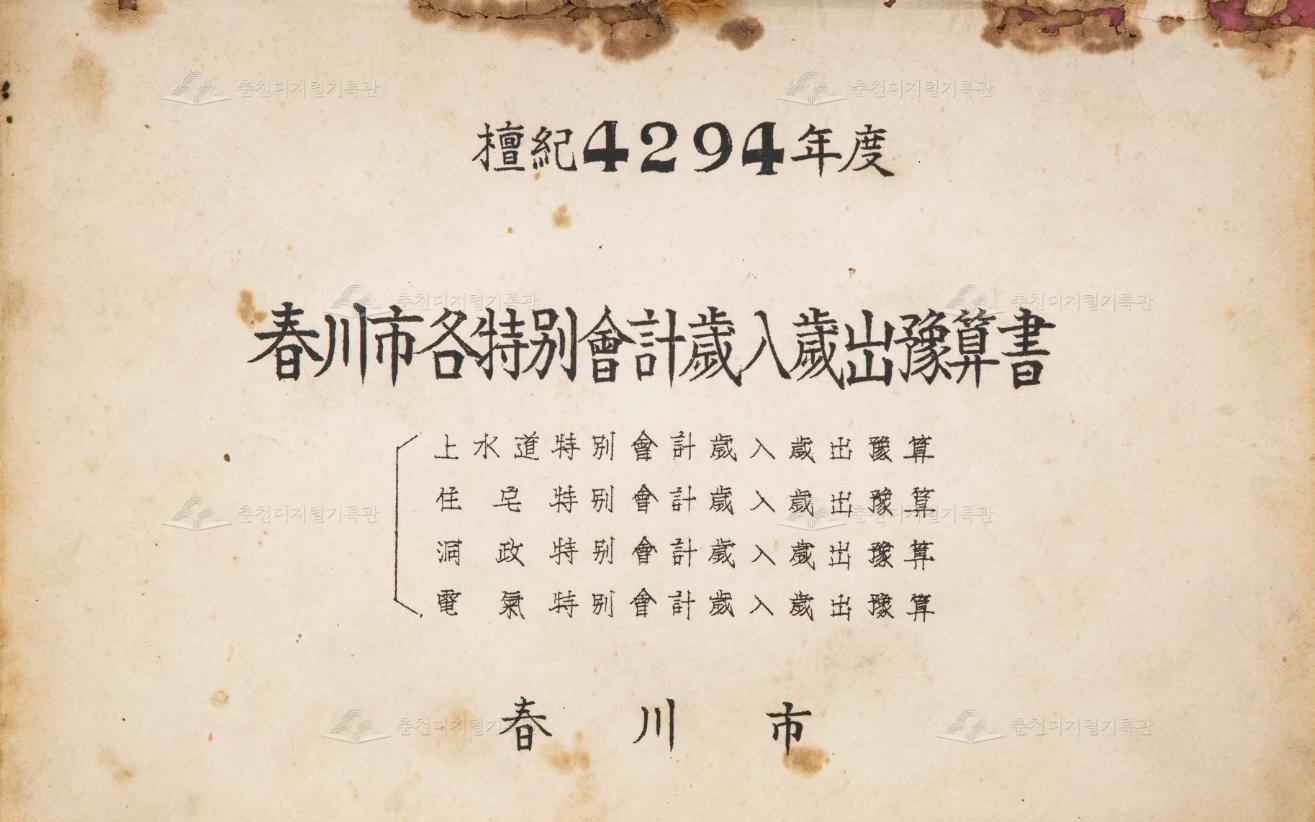 檀紀4294年度
春川市各特別會計歲入歲出豫算書
上水道特別會計歲入歲出豫算
住宅特別會計歲入歲出豫算
洞政特別會計歲入歲出豫算
電氣特別會計歲入歲出豫算
春川市
춘천디지털기록관
춘천디지털기록관
춘천디지털기록관
춘천디지털기록관
춘천디지털기록관
춘천디지털기록관
춘천디지털기록관
춘천디지털기록관